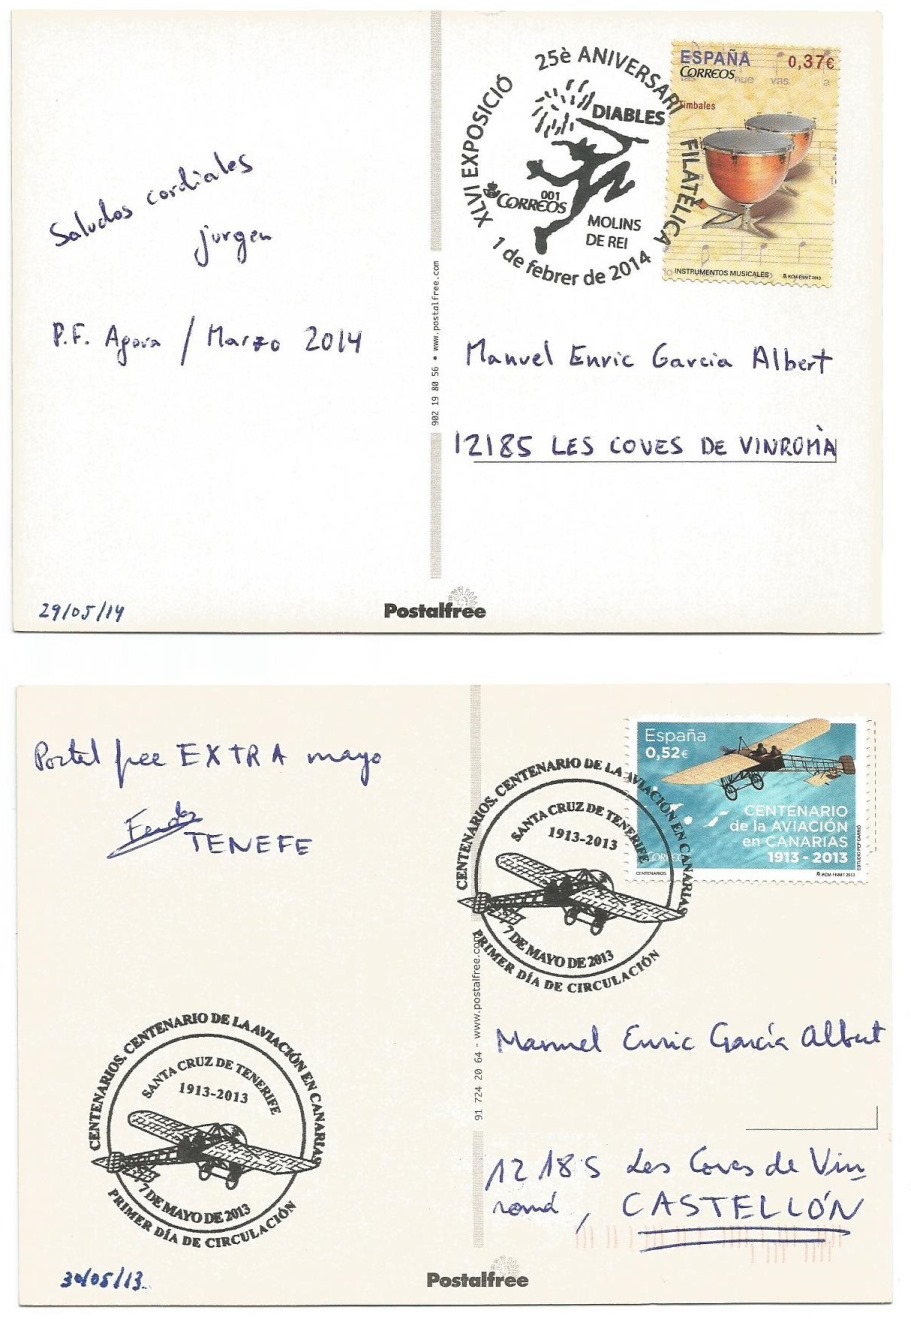 Saludos cordiales
jurgen
P.F. Agora / Marzo 2014
29/05/14
902 19 80 56 • www.postalfree.com
Postalfree
XLVI EXPOSICIÓ 25è ANIVERSARI FILATÈLICA
DIABLES
001
CORREOS
MOLINS
DE REI
1 de febrer de 2014
ESPAÑA 0,37€
CORREOS
nue vas a
Timbales
INSTRUMENTOS MUSICALES RCM-FNMT 2013
Manuel Enric Garcia Albert
12185 LES COVES DE VINROMÀ
Postal free EXTRA mayo
TENEFE
CENTENARIOS. CENTENARIO DE LA AVIACIÓN EN CANARIAS
SANTA CRUZ DE TENERIFE
1913-2013
7 DE MAYO DE 2013
PRIMER DÍA DE CIRCULACIÓN
30/05/13
91 724 20 64 - www.postalfree.com
Postalfree
España
0,52€
CENTENARIO
de la AVIACIÓN
en CANARIAS
1913 - 2013
CORREOS
CENTENARIOS RCM-FNMT 2013
CENTENARIOS. CENTENARIO DE LA AVIACIÓN EN CANARIAS
SANTA CRUZ DE TENERIFE
1913-2013
7 DE MAYO DE 2013
PRIMER DÍA DE CIRCULACIÓN
Manuel Enric García Albert
12185 Les Coves de Vin
romá, CASTELLÓN